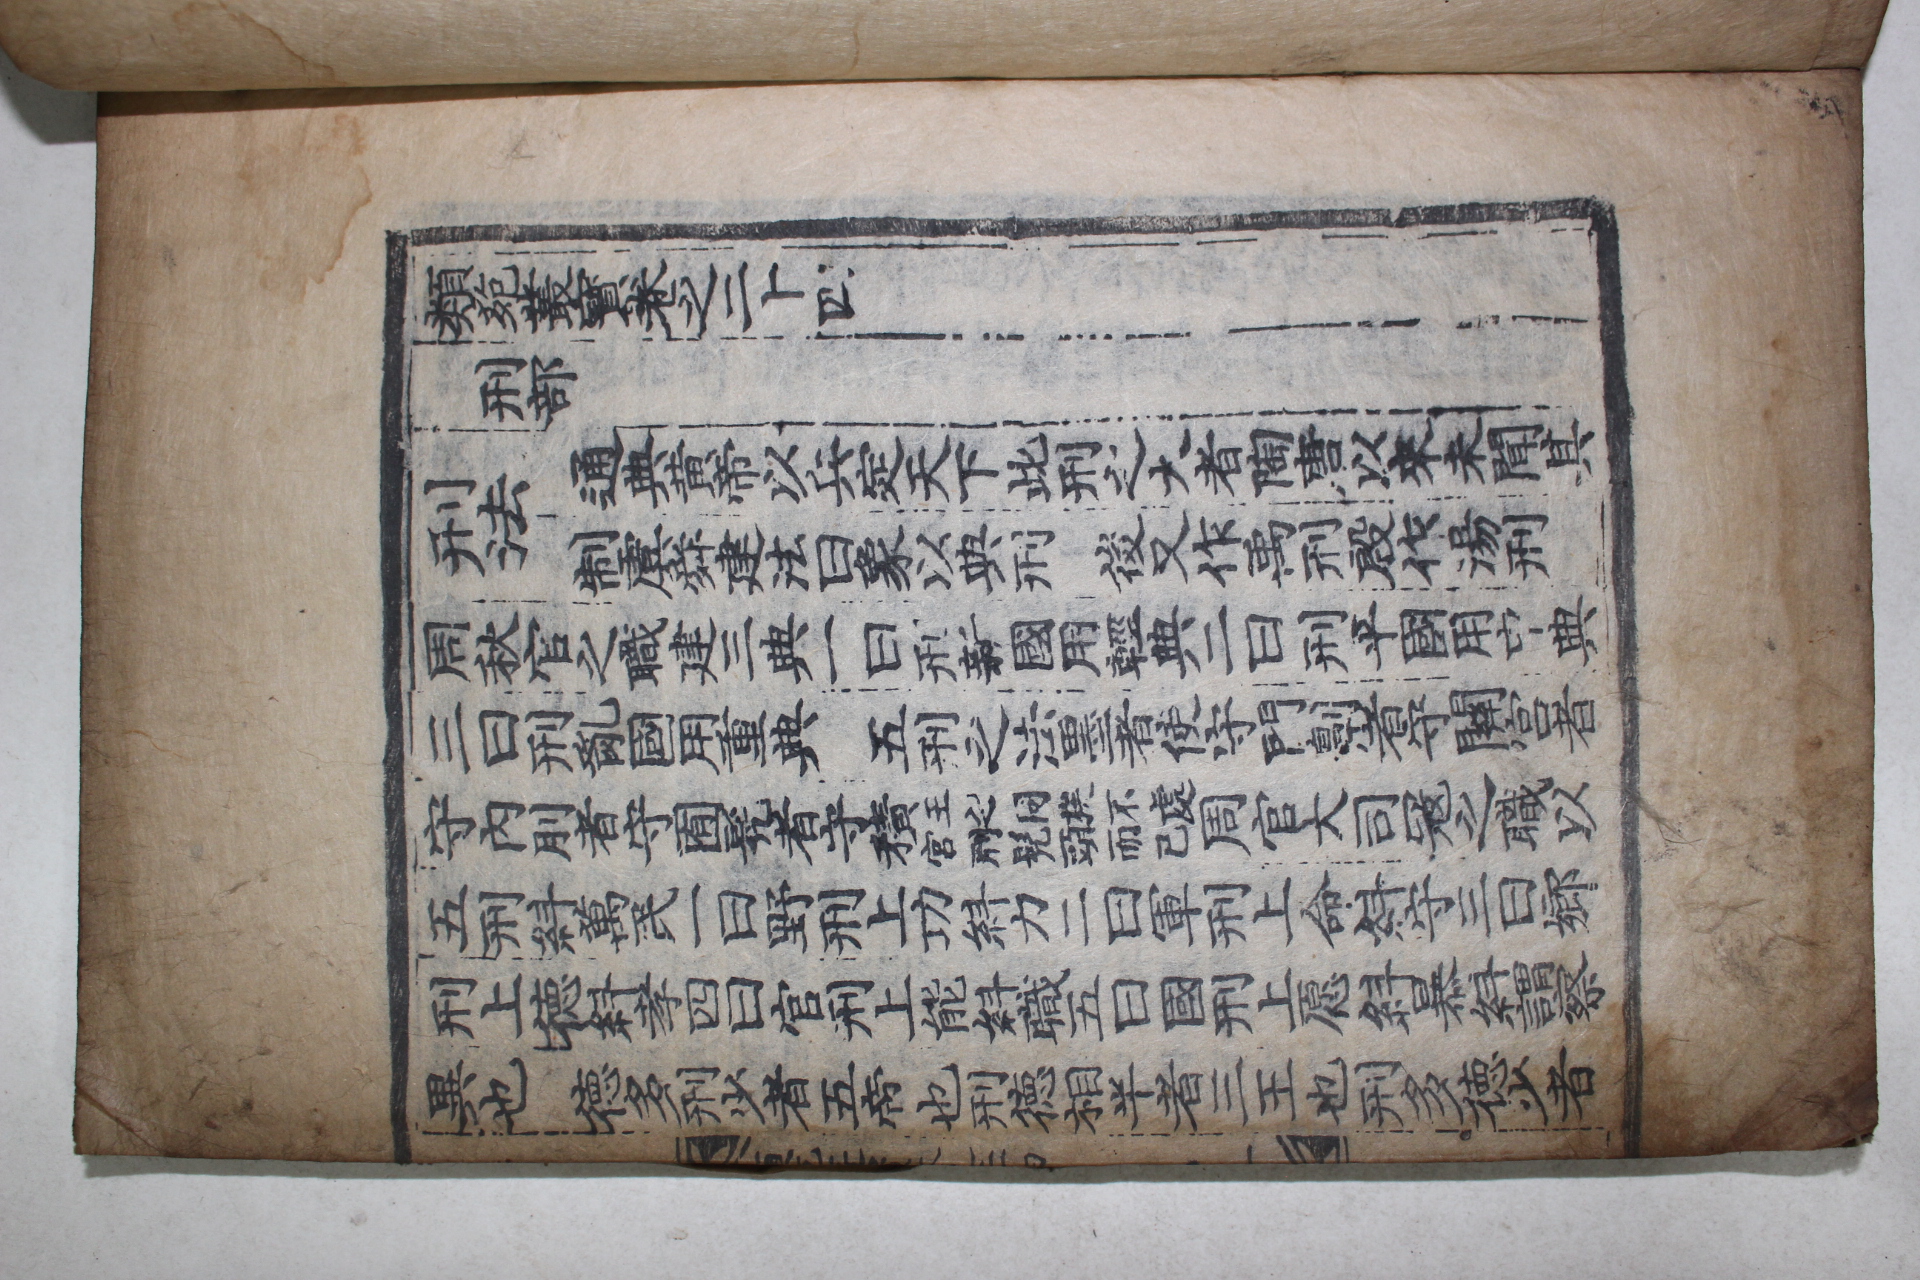 類說叢寶卷之二十四
刑部
刑法 通典黃帝以兵定天下此刑之大者陶唐以來未聞其
制虞舜建法曰象以典刑 後又作禹刑殷作湯刑
周秋官之職建三典一曰刑新國用輕典二曰刑平國用中典
三曰刑亂國用重典 五刑之法墨者使守門劓者守關宮者
守內刖者守囿髡者守積 周官大司寇之職以
五刑糾萬民一曰野刑上功糾力二曰軍刑上命糾守三曰鄉
刑上德糾孝四曰官刑上能糾職五曰國刑上愿糾暴糾謂察
異也 德多刑少者五帝也刑德相半者三王也刑多德少者